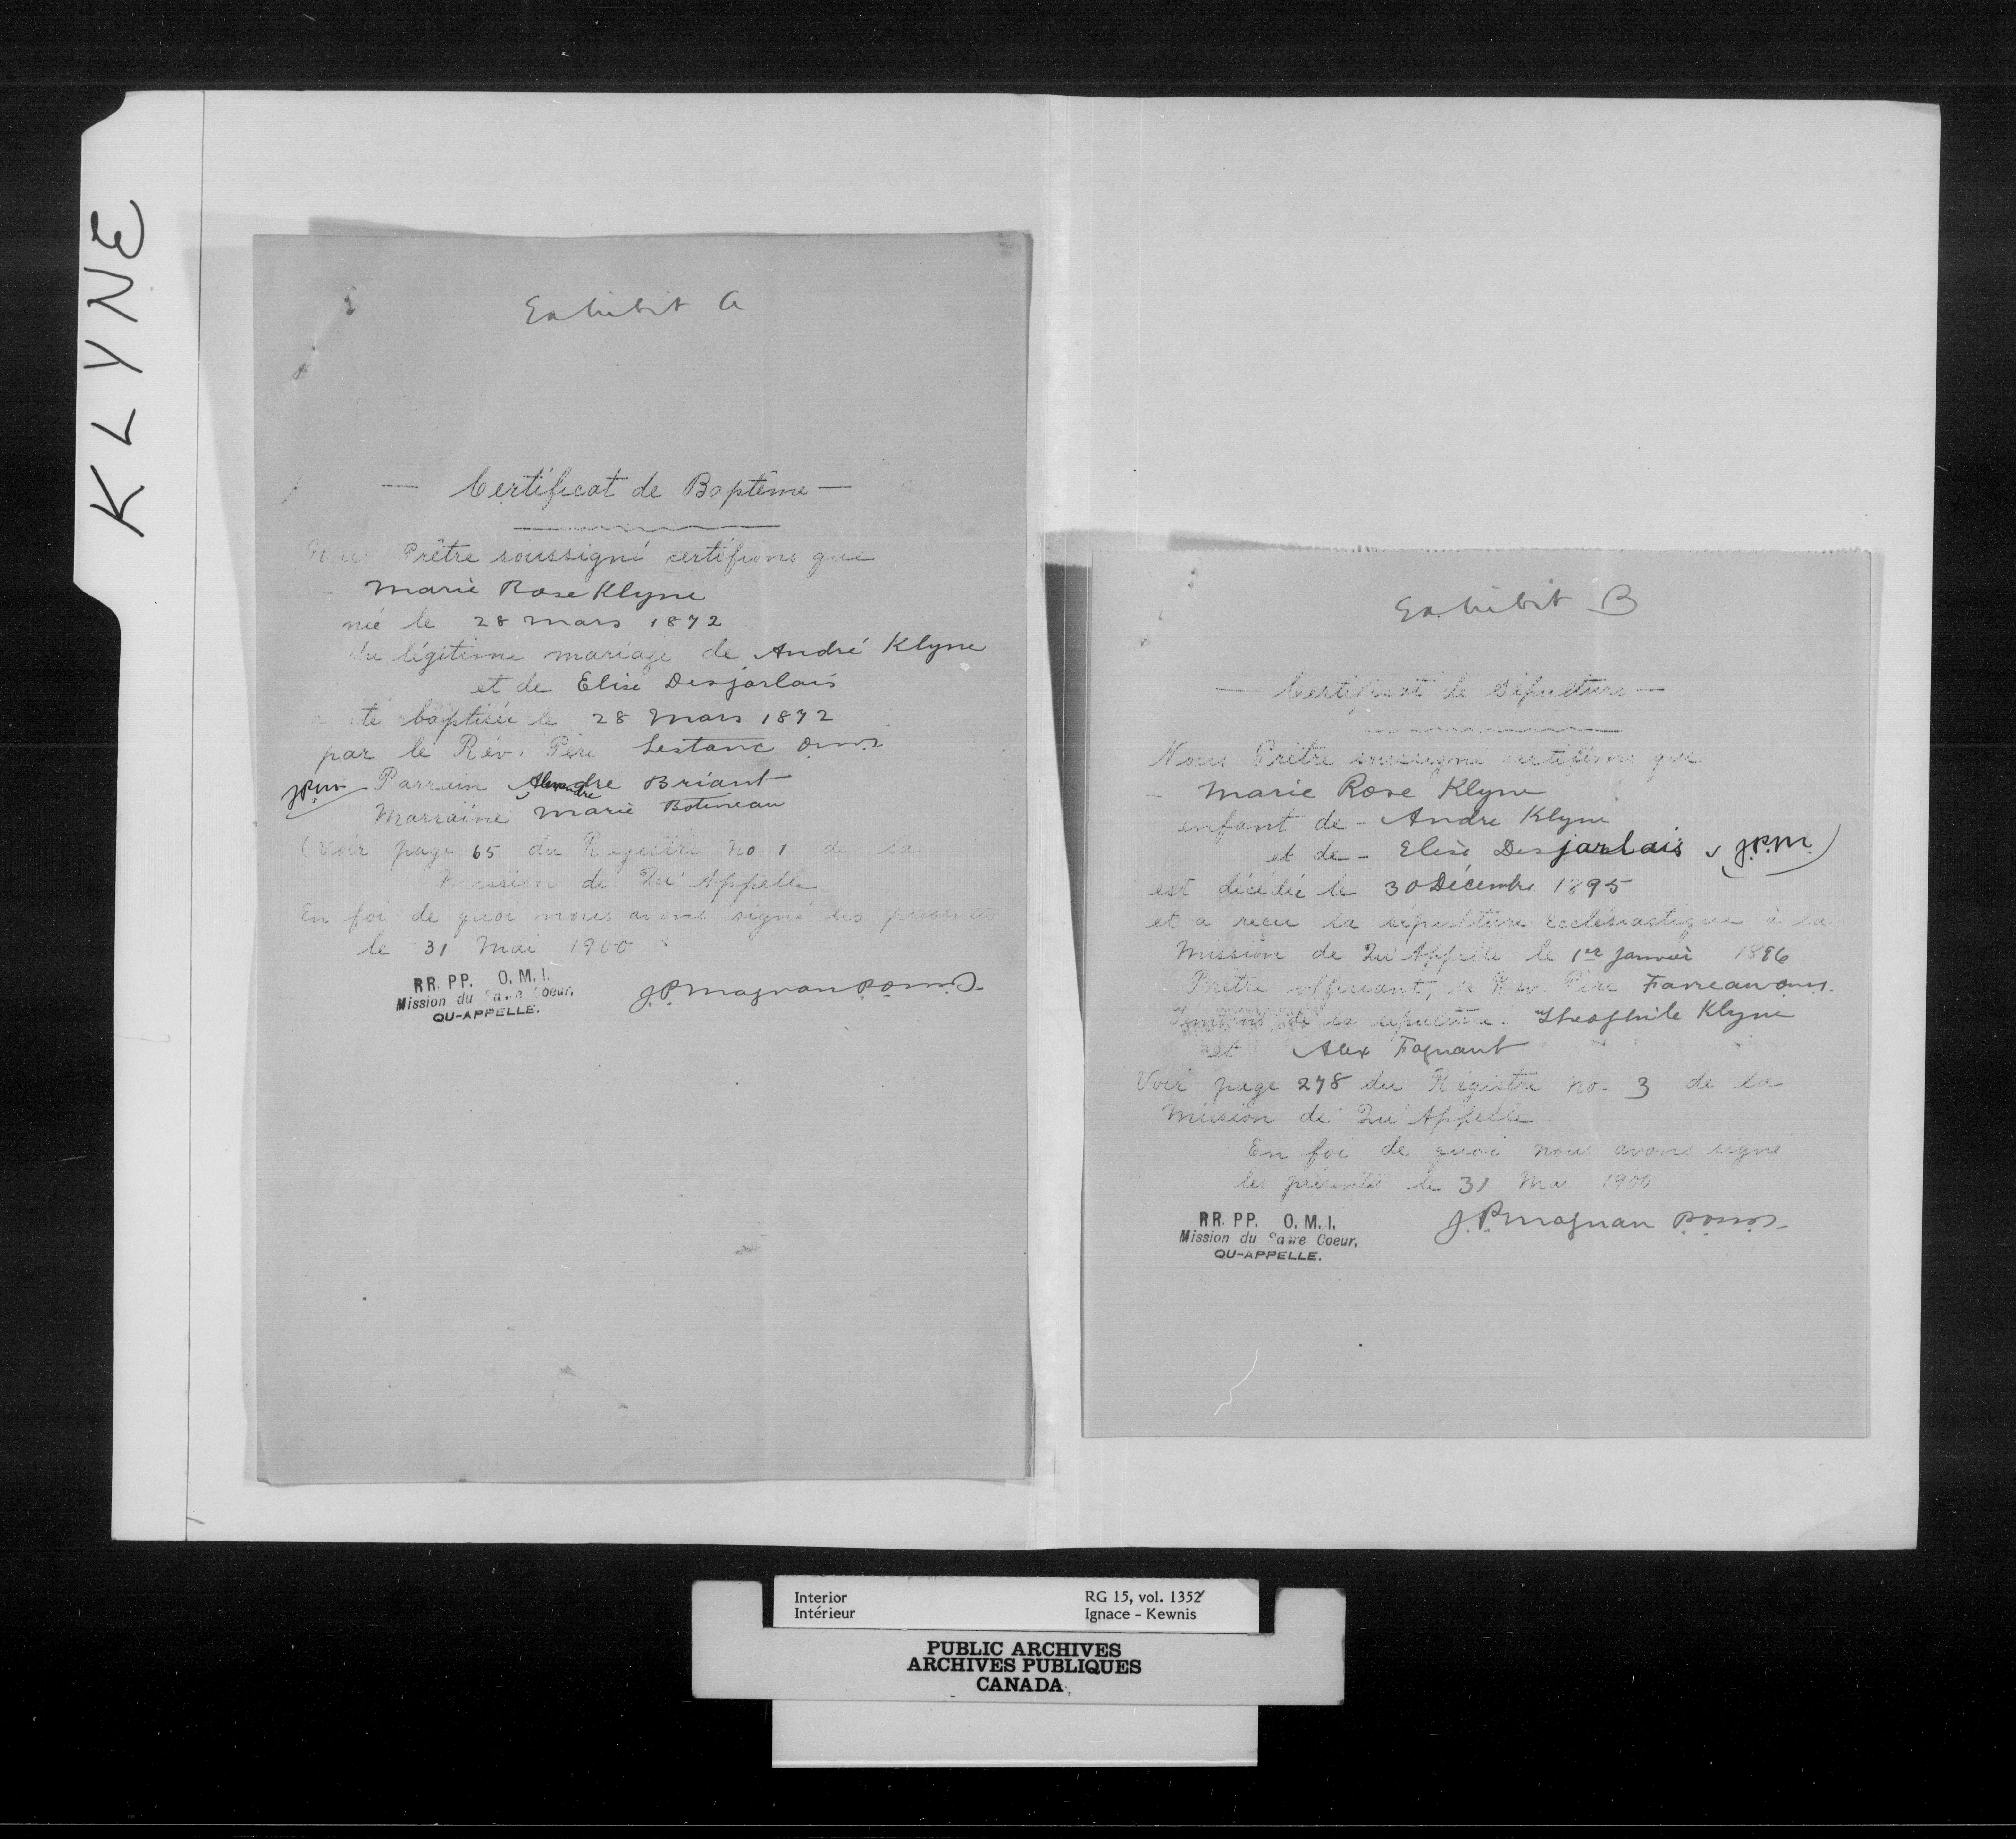 KLYNE
Exhibit A
— Certificat de Baptême —
Nous Prêtre soussigné certifions que
Marie Rose Klyne
née le 28 mars 1872
du légitime mariage de André Klyne
et de Elise Desjarlais
a été baptisée le 28 mars 1872
par le Rév. Père Lestanc o.m.i.
J.P.M. Parrain Alexandre Briant
Marraine Marie Botineau
(Voir page 65 du Registre No 1 de la
Mission de Qu'Appelle
En foi de quoi nous avons signé les présentes
le 31 Mai 1900
RR. PP. O. M. I.
Mission du Sacré Coeur,
QU-APPELLE.
J.P. Magnan p.o.m.i.
Exhibit B
— Certificat de Sépulture —
Nous Prêtre soussigné certifions que
— Marie Rose Klyne
enfant de - Andre Klyne
et de - Elise Desjarlais J.P.M.
est décédée le 30 Décembre 1895
et a reçu la sépulture Ecclésiastique à la
Mission de Qu'Appelle le 1er janvier 1896
Prêtre officiant, le Rév. Père
Témoins de la sépulture. Theophile Klyne
et Alex Fagnant
Voir page 278 du Registre no. 3 de la
Mission de Qu'Appelle.
En foi de quoi nous avons signé
les présentes le 31 Mai 1900
RR. PP. O. M. I.
Mission du Sacré Coeur,
QU-APPELLE.
J.P. Magnan p.o.m.i.
Interior RG 15, vol. 1352
Intérieur Ignace - Kewnis
PUBLIC ARCHIVES
ARCHIVES PUBLIQUES
CANADA